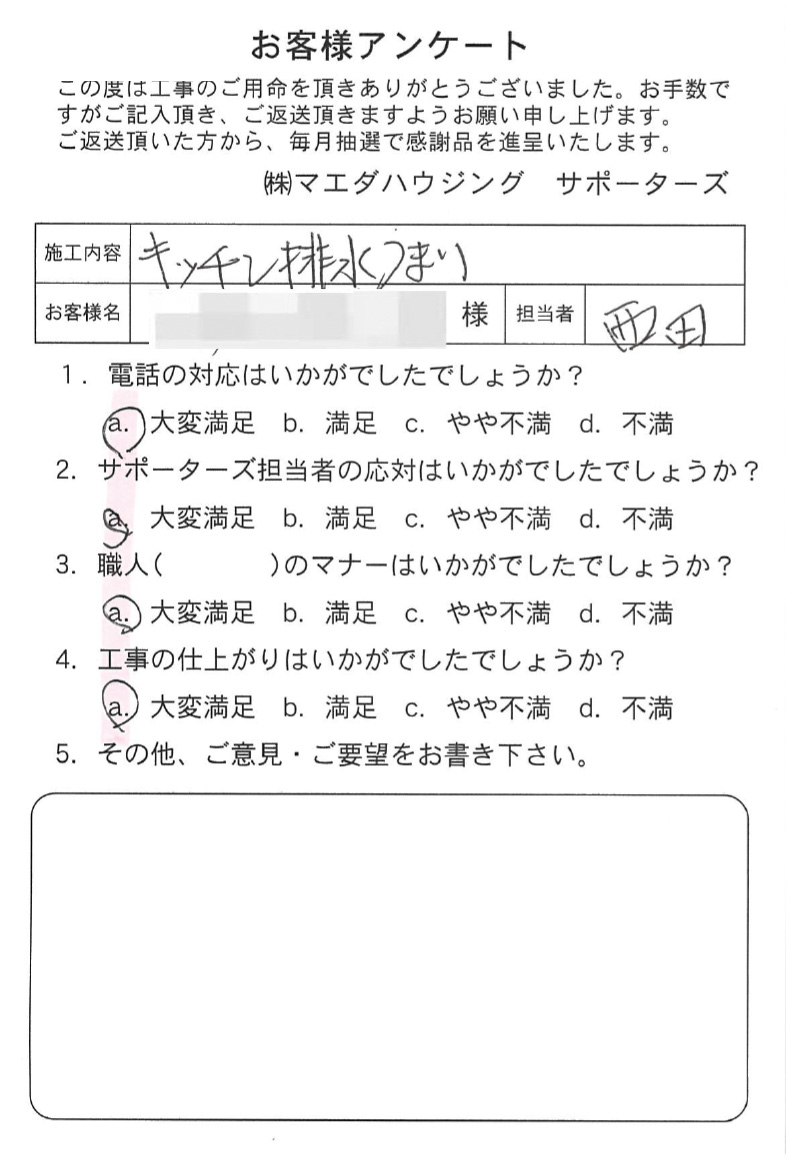 お客様アンケート
この度は工事のご用命を頂きありがとうございました。お手数で
すがご記入頂き、ご返送頂きますようお願い申し上げます。
ご返送頂いた方から、毎月抽選で感謝品を進呈いたします。
㈱マエダハウジング サポーターズ
施工内容 キッチン排水つまり
お客様名 様 担当者 西田
1. 電話の対応はいかがでしたでしょうか？
a. 大変満足 b. 満足 c. やや不満 d. 不満
2. サポーターズ担当者の応対はいかがでしたでしょうか？
a. 大変満足 b. 満足 c. やや不満 d. 不満
3. 職人( )のマナーはいかがでしたでしょうか？
a. 大変満足 b. 満足 c. やや不満 d. 不満
4. 工事の仕上がりはいかがでしたでしょうか？
a. 大変満足 b. 満足 c. やや不満 d. 不満
5. その他、ご意見・ご要望をお書き下さい。